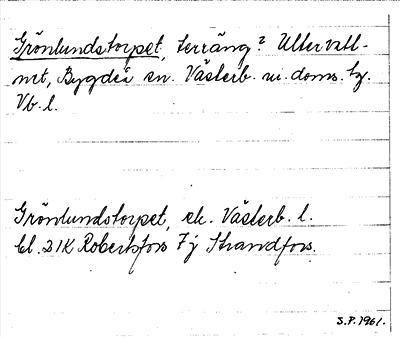 Grönlundstorpet, terräng? Ultervatt-
net, Bygdeå sn. Västerb. ri. doms. tg.
Vb. l.
Grönlundstorpet, ek. Västerb. l.
bl. 21K Robertsfors 7j Strandfors.
S.P. 1961.